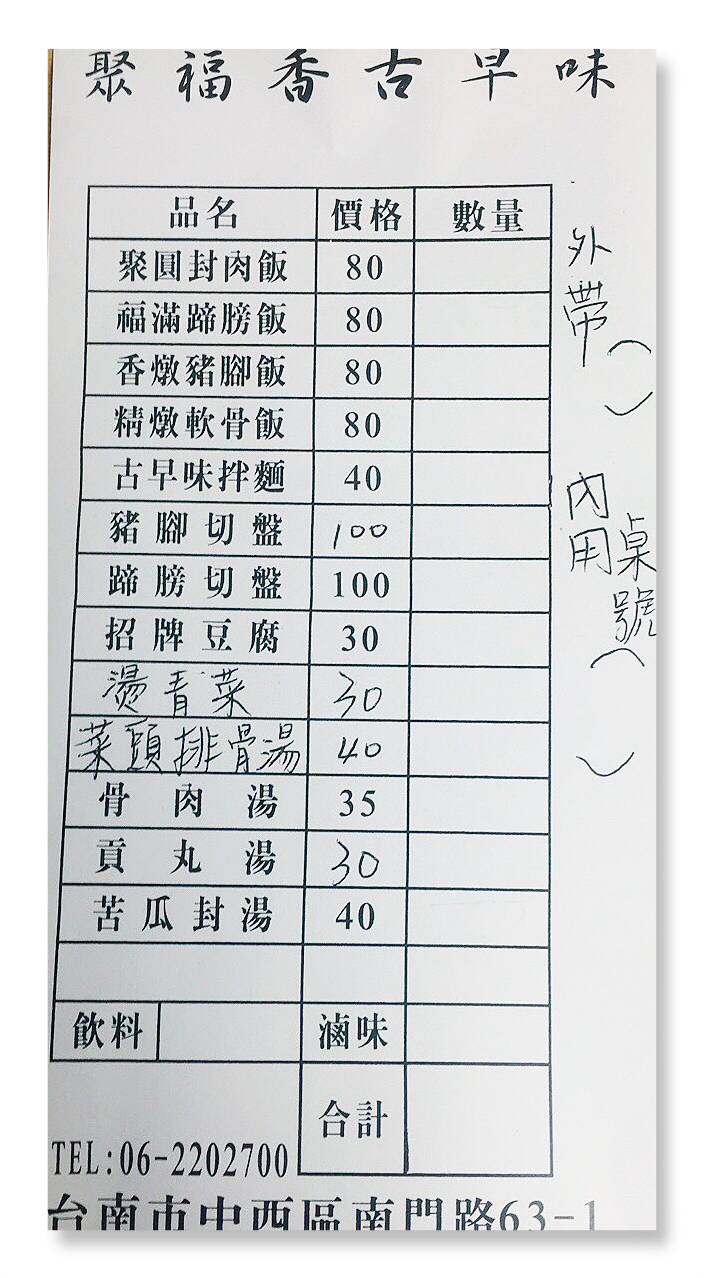 聚福香古早味
品名 價格 數量
聚圓封肉飯 80
福滿蹄膀飯 80
香燉豬腳飯 80
精燉軟骨飯 80
古早味拌麵 40
豬腳切盤 100
蹄膀切盤 100
招牌豆腐 30
燙青菜 30
菜頭排骨湯 40
骨肉湯 35
貢丸湯 30
苦瓜封湯 40
飲料 滷味
合計
外帶( )
內用桌號( )
TEL:06-2202700
台南市中西區南門路63-1